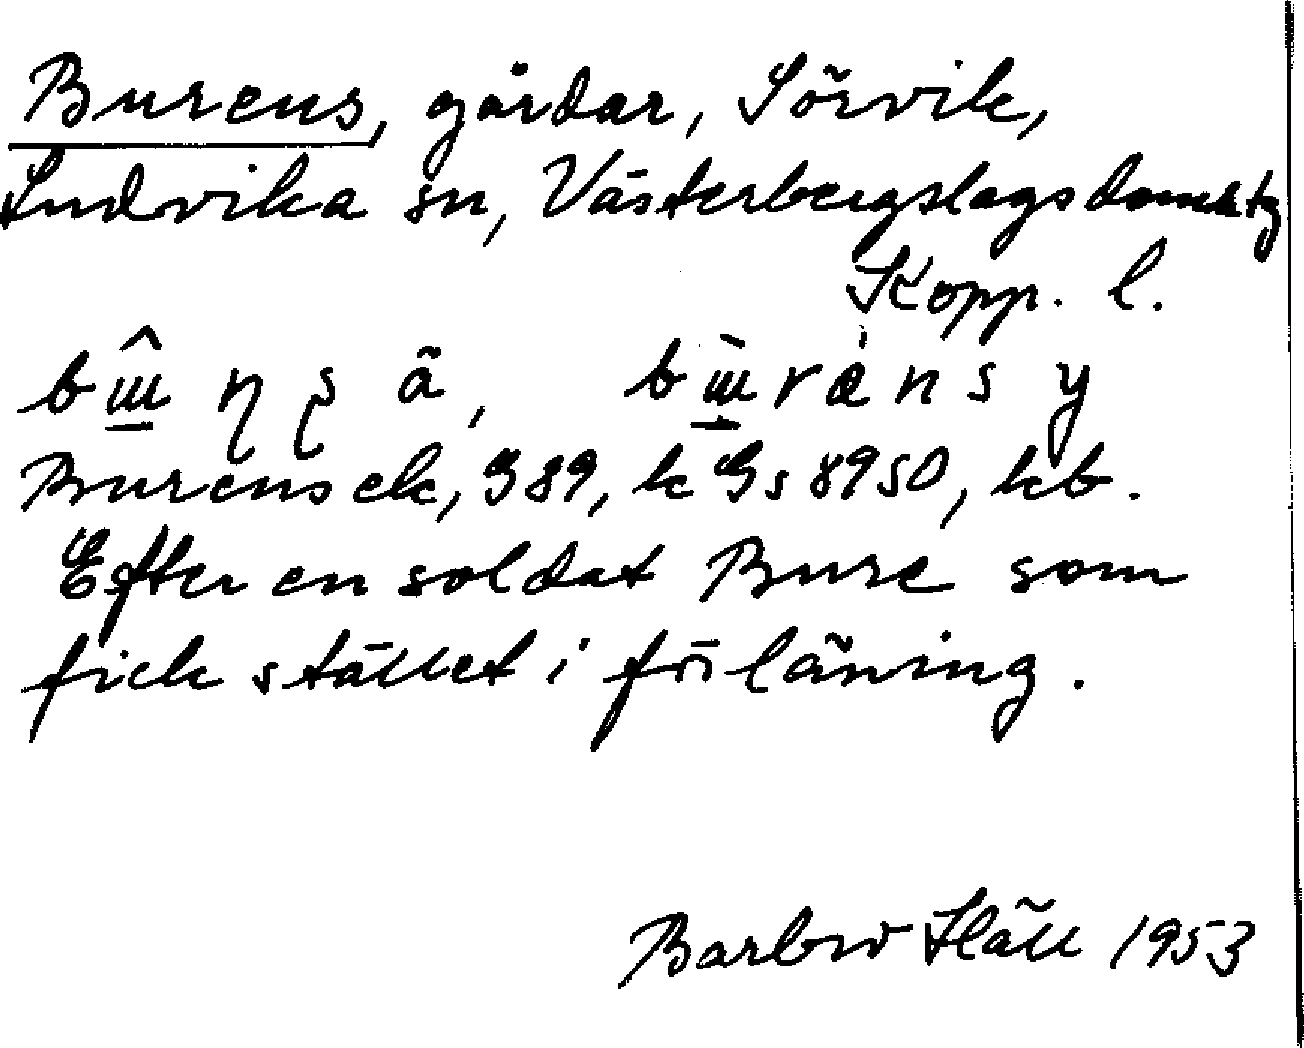 Burens, gårdar, Sörvik,
Ludvika sn, Västerbergslags
Kopp. l.
Burens ek, G 89, k Gs 8950, kb.
Efter en soldat Bure som
fick stället i förläning.
Barbro Häll 1953